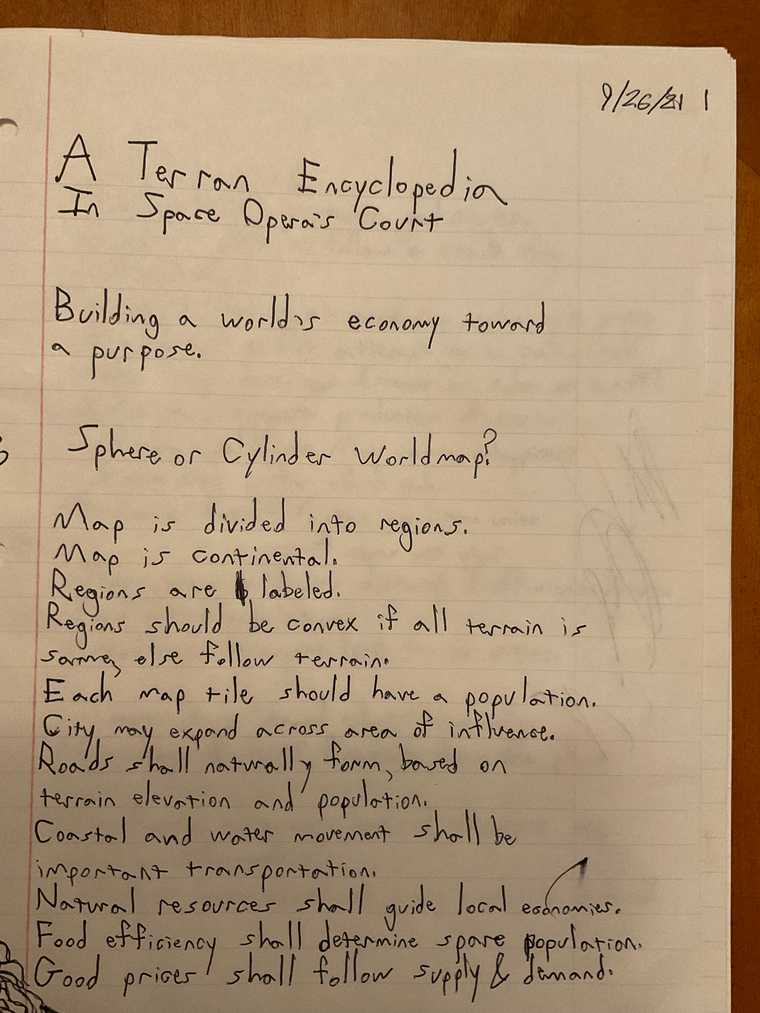 9/26/21 1
A Terran Encyclopedia
In Space Opera's Court
Building a world's economy toward
a purpose.
Sphere or Cylinder Worldmap?
Map is divided into regions.
Map is continental.
Regions are labeled.
Regions should be convex if all terrain is
same, else follow terrain.
Each map tile should have a population.
City may expand across area of influence.
Roads shall naturally form, based on
terrain elevation and population.
Coastal and water movement shall be
important transportation.
Natural resources shall guide local economies.
Food efficiency shall determine spare population.
Good prices shall follow supply & demand.